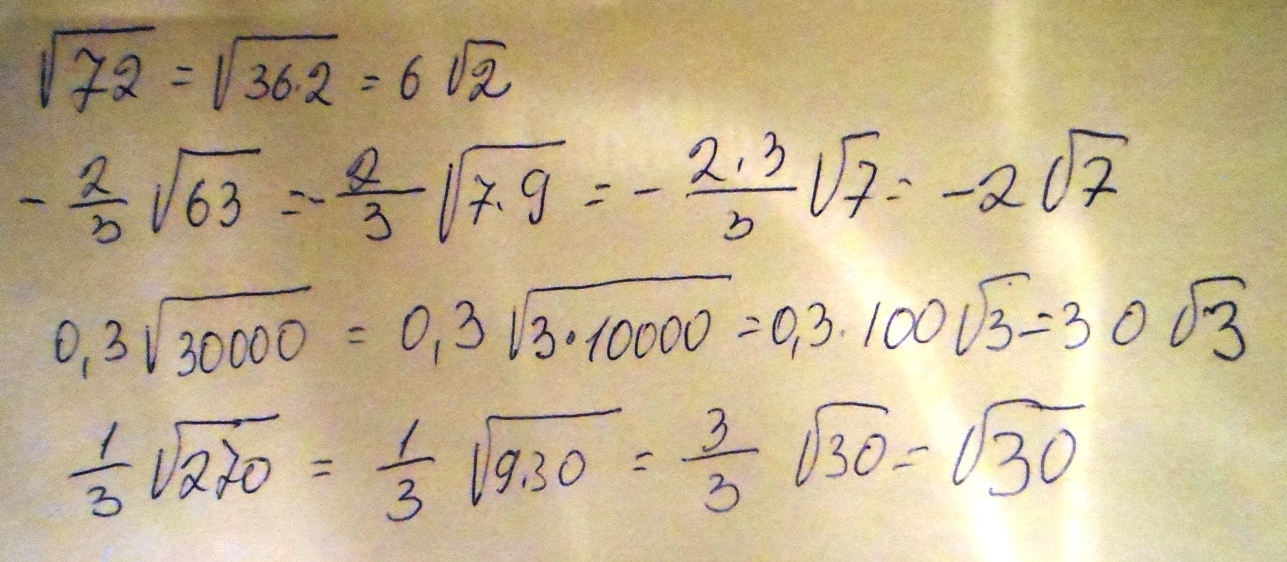 √72 = √36·2 = 6 √2
- 2/3 √63 = - 2/3 √7·9 = - 2·3/3 √7 = -2 √7
0,3 √30000 = 0,3 √3·10000 = 0,3·100 √3 = 30 √3
1/3 √270 = 1/3 √9·30 = 3/3 √30 = √30